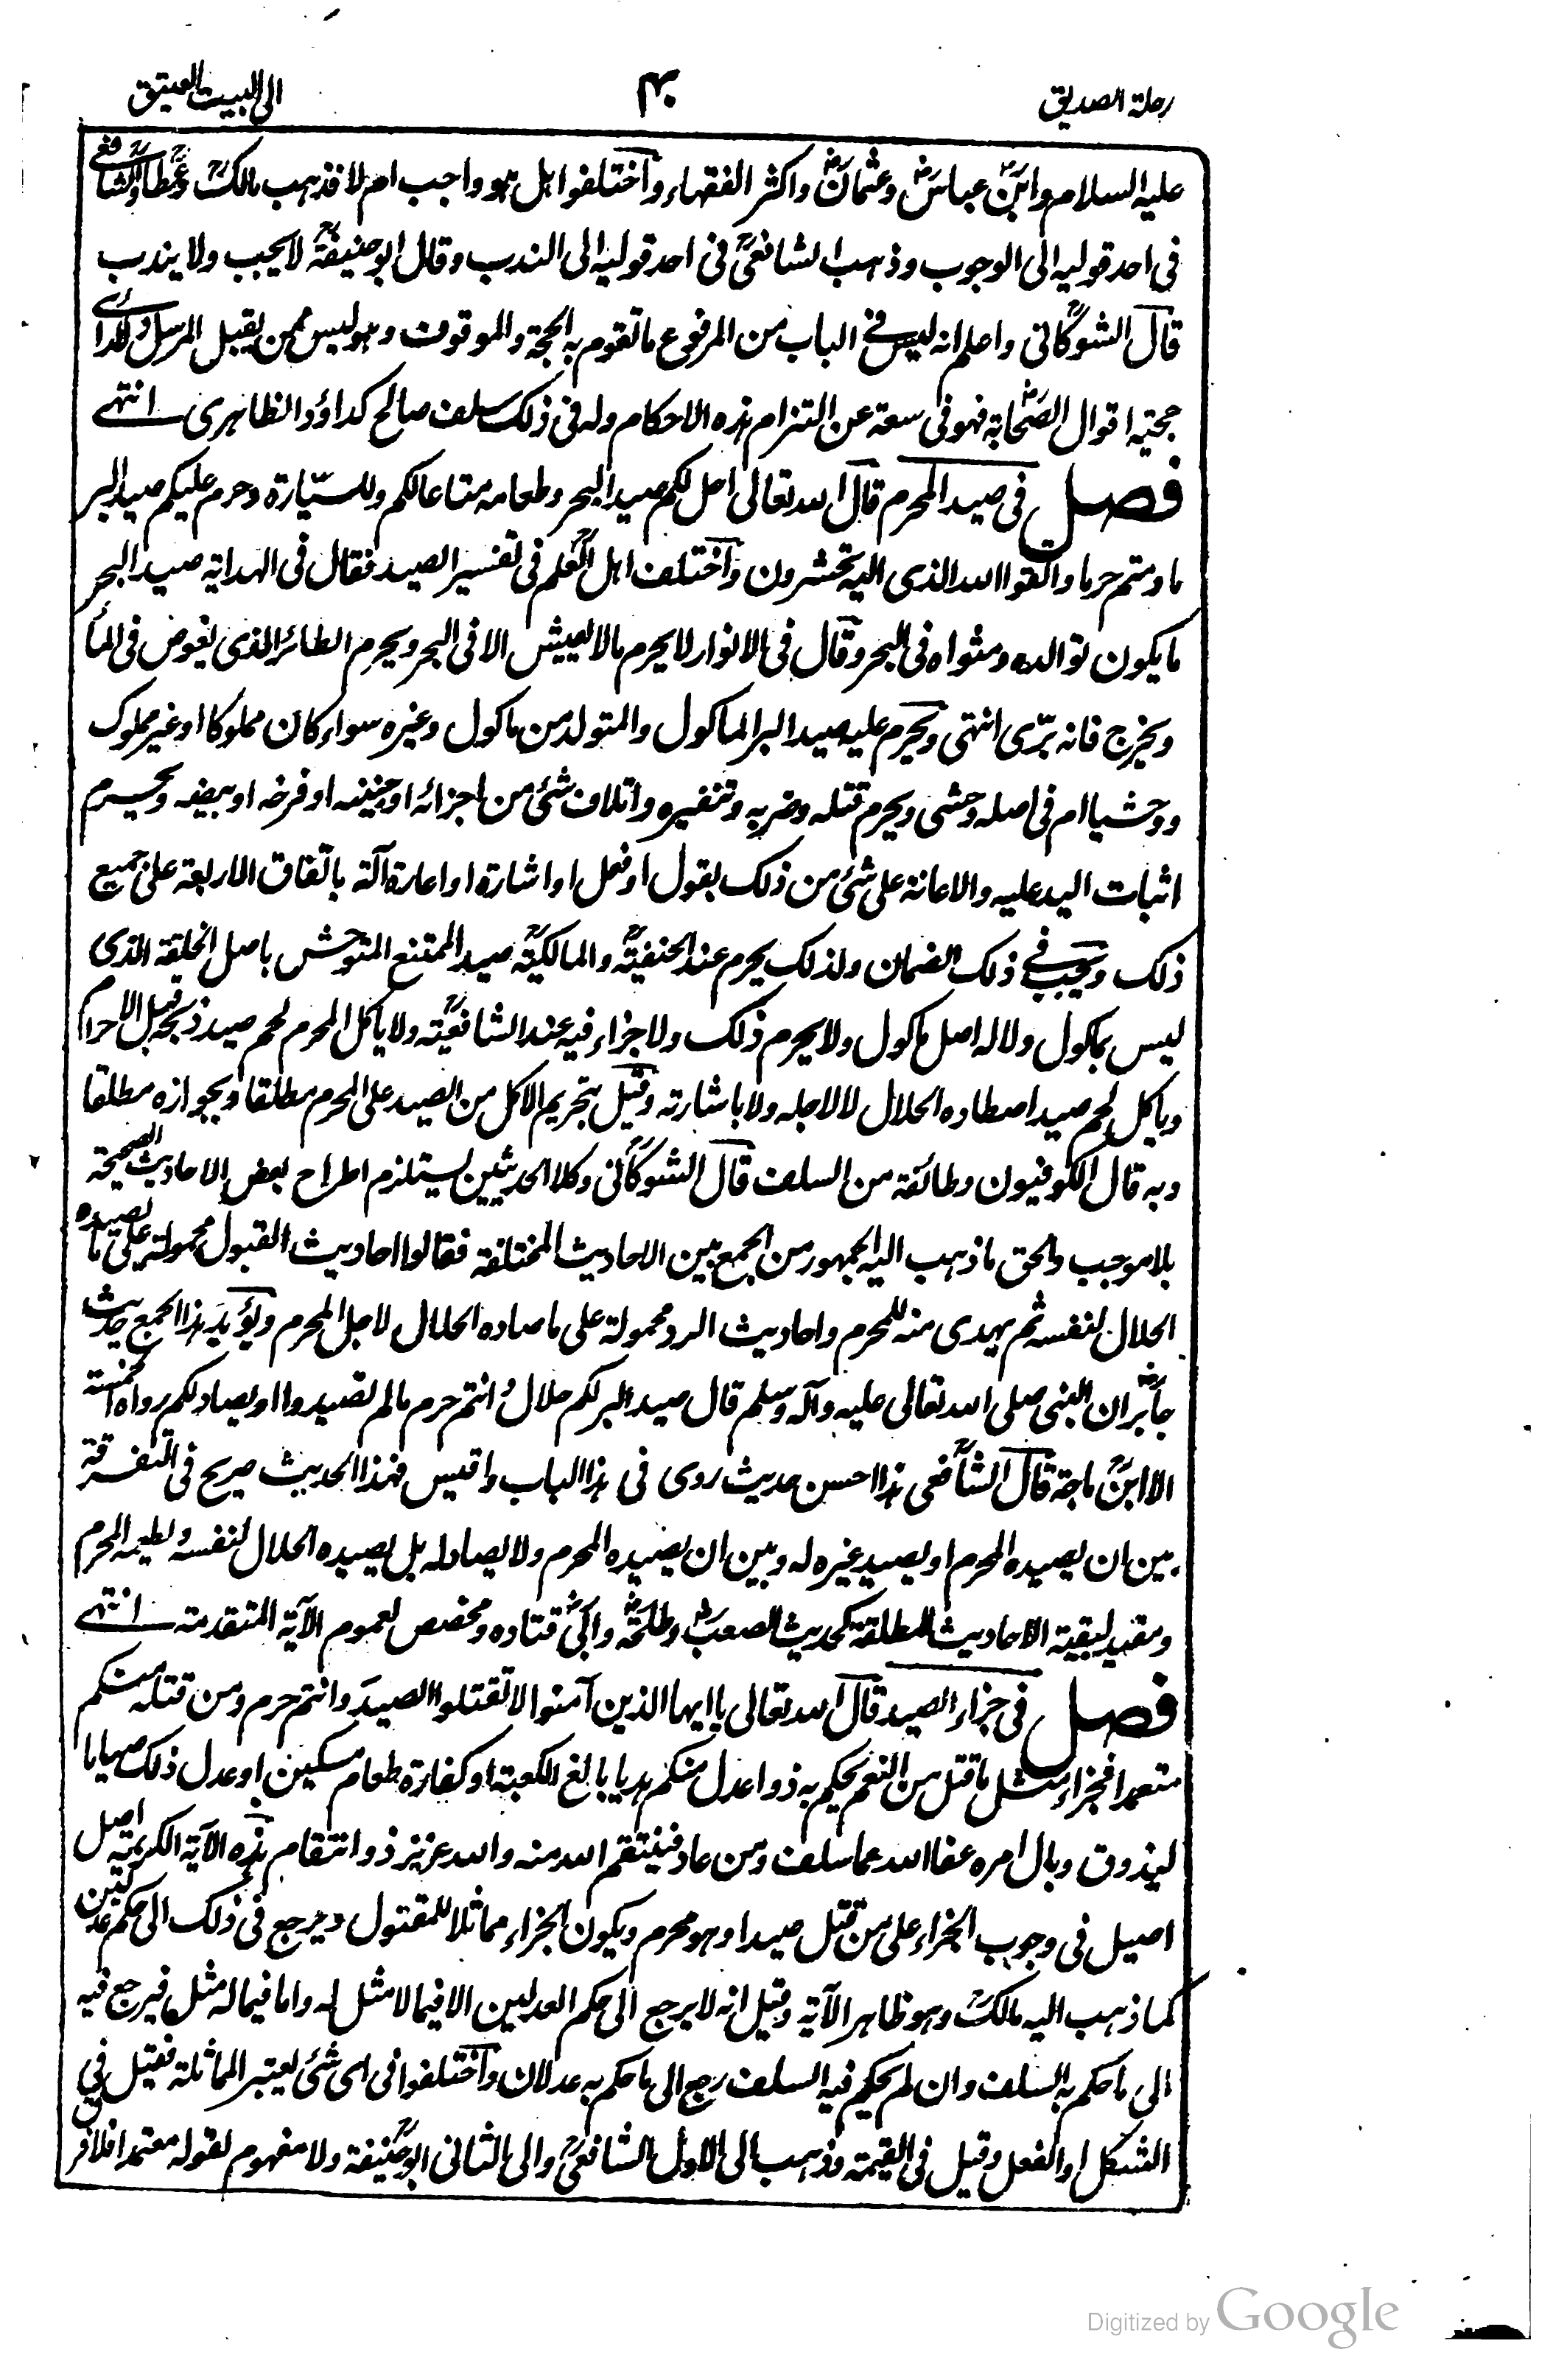 رحلة الصديق
٤٠
الى البيت العتيق
عليه السلام وابن عباس وعثمان واكثر الفقهاء واختلفوا هل هو واجب ام لا فذهب مالك وعطا والشافعي
في احد قوليه الى الوجوب وذهب الشافعي في احد قوليه الى الندب وقال ابو حنيفة لا يجب ولا يندب
قال الشوكاني واعلم انه ليس في الباب من المرفوع ما تقوم به الحجة والموقوف وهو ليس ممن يقبل المرسل ولا رأى
حجية اقوال الصحابة فهو في سعة عن التزام هذه الاحكام وله في ذلك سلف صالح كداؤد الظاهري انتهى
فصل في صيد المحرم قال الله تعالى احل لكم صيد البحر وطعامه متاعا لكم وللسيّارة وحرم عليكم صيد البر
ما دمتم حرما واتقوا الله الذي اليه تحشرون واختلف اهل العلم في تفسير الصيد فقال في الهداية صيد البحر
ما يكون توالده ومثواه في البحر وقال في الانوار لا يحرم ما لا يعيش الا في البحر ويحرم الطائر الذي يغوص في الماء
ويخرج فانه برّى انتهى ويحرم عليه صيد البر الماكول والمتولد من ماكول وغيره سواء كان مملوكا او غير مملوك
ووحشيا ام في اصله وحشى ويحرم قتله وضربه وتنفيره واتلاف شئ من اجزائه او جنينه او فرخه او بيضه ويحرم
اثبات اليد عليه والاعانة على شئ من ذلك بقول او فعل او اشارة او اعارة آلة باتفاق الاربعة على جميع
ذلك ويجب في ذلك الضمان ولذلك يحرم عند الحنفية والمالكية صيد الممتنع المتوحش باصل الخلقة الذي
ليس بماكول ولا له اصل ماكول ولا يحرم ذلك ولا جزاء فيه عند الشافعية ولا ياكل المحرم لحم صيد ذبحه قبل الاحرام
وياكل لحم صيد اصطاده الحلال لا لاجله ولا باشارته وقيل بتحريم الاكل من الصيد على المحرم مطلقا وبجوازه مطلقا
وبه قال الكوفيون وطائفة من السلف قال الشوكاني وكلا الحديثين يستلزم اطراح بعض الاحاديث الصحيحة
بلا موجب والحق ما ذهب اليه الجمهور من الجمع بين الاحاديث المختلفة فقالوا احاديث القبول محمولة على ما يصيده
الحلال لنفسه ثم يهدى منه للمحرم واحاديث الرد محمولة على ما صاده الحلال لاجل المحرم ويؤيد هذا الجمع حديث
جابر ان النبي صلى الله تعالى عليه وآله وسلم قال صيد البر لكم حلال وانتم حرم ما لم تصيدوا او يصاد لكم رواه الخمسة
الا ابن ماجة قال الشافعي هذا احسن حديث روى في هذا الباب واقيس فهذا الحديث صريح في التفرقة
بين ان يصيده المحرم او يصيد غيره له وبين ان يصيده المحرم ولا يصاد له بل يصيده الحلال لنفسه ويطعمه المحرم
ومقيد لبقية الاحاديث المطلقة كحديث الصعب وطلحة وابي قتاده ومخصص لعموم الآية المتقدمة انتهى
فصل في جزاء الصيد قال الله تعالى يا ايها الذين آمنوا لا تقتلوا الصيد وانتم حرم ومن قتله منكم
متعمدا فجزاء مثل ما قتل من النعم يحكم به ذوا عدل منكم هديا بالغ الكعبة او كفارة طعام مسكين او عدل ذلك صياما
ليذوق وبال امره عفا الله عما سلف ومن عاد فينتقم الله منه والله عزيز ذو انتقام هذه الآية الكريمة اصل
اصيل في وجوب الجزاء على من قتل صيدا وهو محرم ويكون الجزاء مماثلا للمقتول ويرجع في ذلك الى حكم عدلين
كما ذهب اليه مالك وهو ظاهر الآية وقيل انه لا يرجع الى حكم العدلين الا فيما لا مثل له واما فيما له مثل فيرجع فيه
الى ما حكم به السلف وان لم يحكم فيه السلف رجع الى ما حكم به عدلان واختلفوا في اى شئ يعتبر المماثلة فقيل في
الشكل او الفعل وقيل في القيمة وذهب الى الاول الشافعي والى الثاني ابو حنيفة ولا مفهوم لقوله متعمدا فلا فرق
Digitized by Google